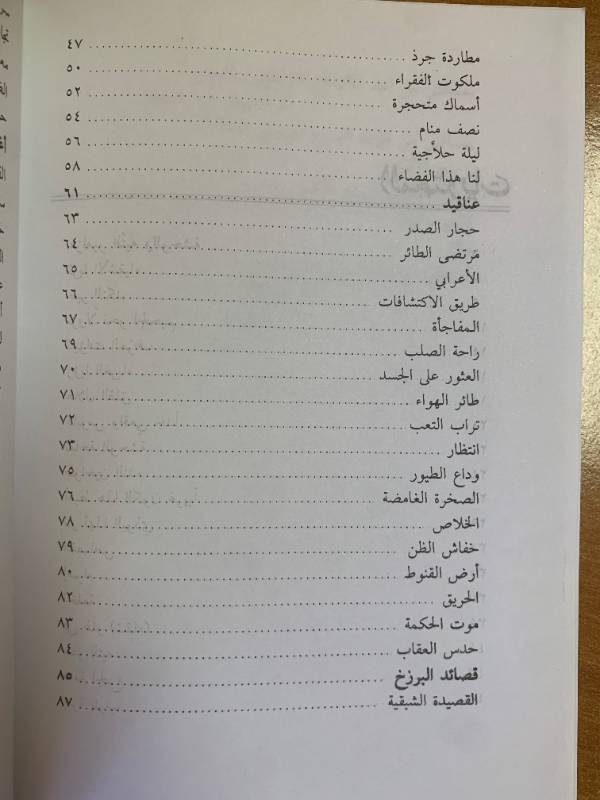 مطاردة جرذ ........ ٤٧
ملكوت الفقراء ........ ٥٠
أسماك متحجرة ........ ٥٢
نصف منام ........ ٥٤
ليلة حلاّجية ........ ٥٦
لنا هذا الفضاء ........ ٥٨
عناقيد ........ ٦١
حجار الصدر ........ ٦٣
مَرتضى الطائر ........ ٦٤
الأعرابي ........ ٦٥
طريق الاكتشافات ........ ٦٦
المفاجأة ........ ٦٧
راحة الصلب ........ ٦٩
العثور على الجسد ........ ٧٠
طائر الهواء ........ ٧١
تراب التعب ........ ٧٢
انتظار ........ ٧٣
وداع الطيور ........ ٧٥
الصخرة الغامضة ........ ٧٦
الخلاص ........ ٧٨
خفاش الظن ........ ٧٩
أرض القنوط ........ ٨٠
الحريق ........ ٨٢
موت الحكمة ........ ٨٣
حدس العقاب ........ ٨٤
قصائد البرزخ ........ ٨٥
القصيدة الشبقية ........ ٨٧